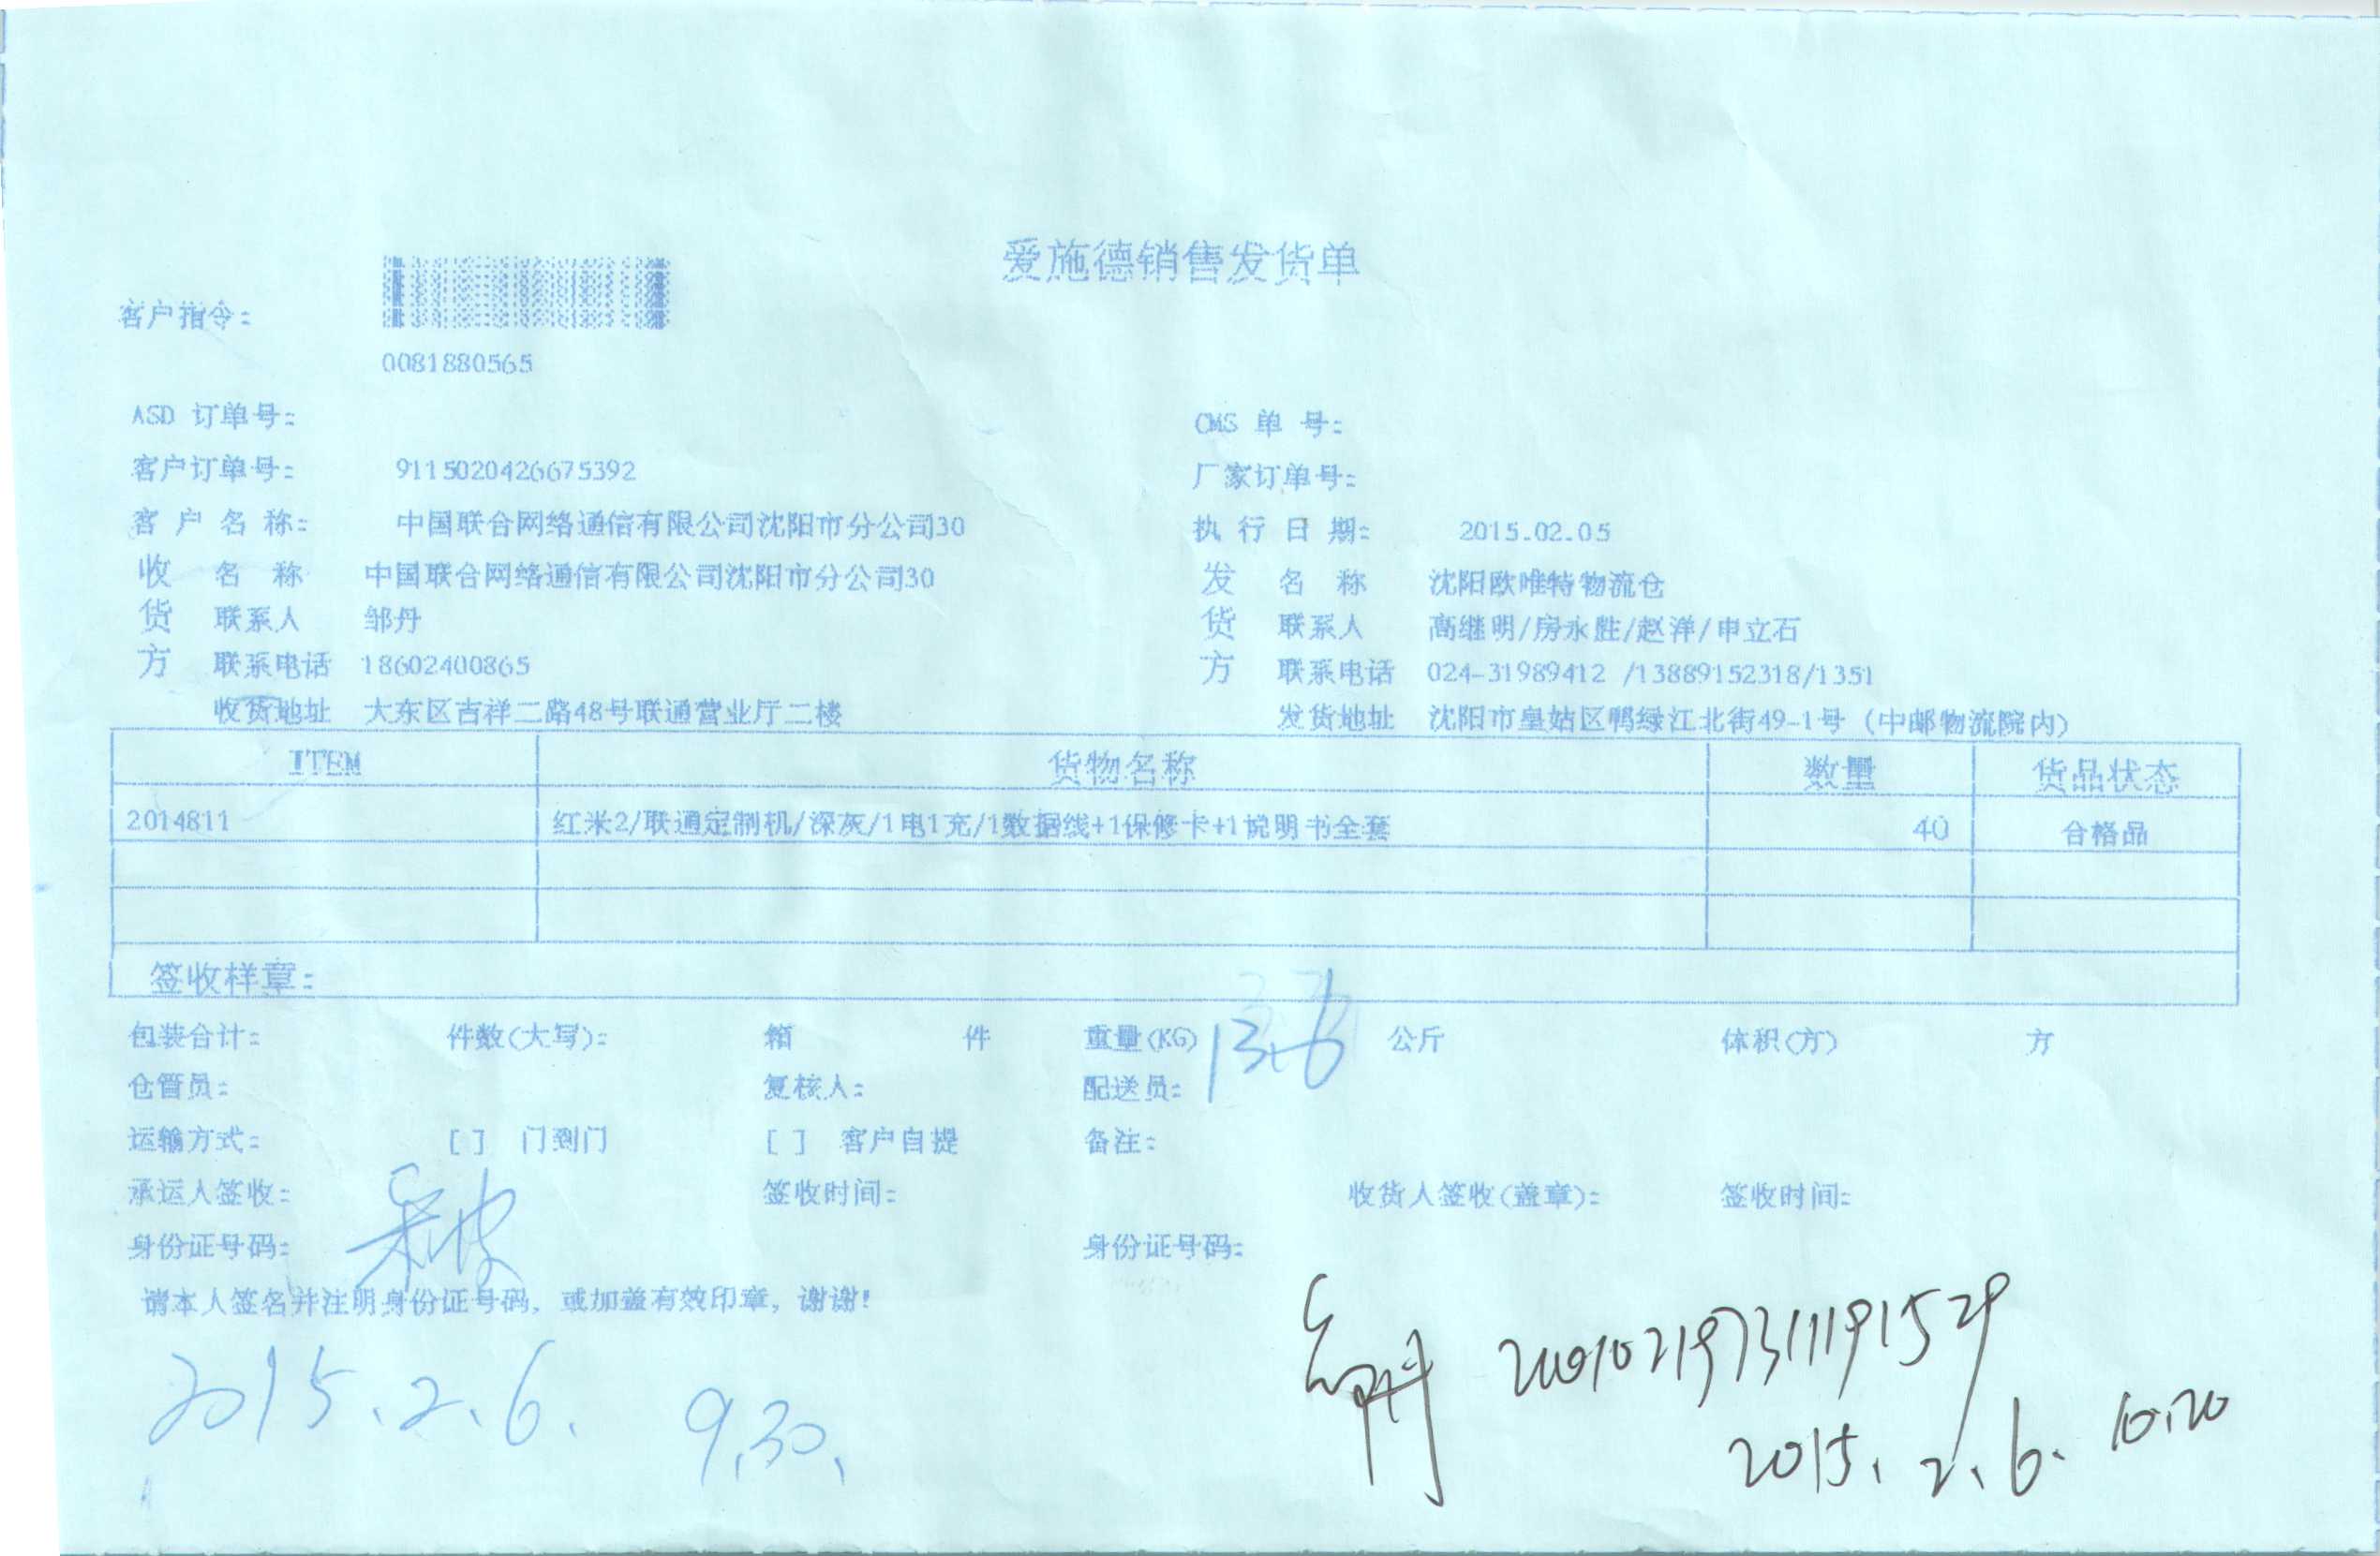 爱施德销售发货单
客户指令:
0081880565
ASD 订单号: CMS 单 号:
客户订单号: 9115020426675392 厂家订单号:
客 户 名 称: 中国联合网络通信有限公司沈阳市分公司30 执 行 日 期: 2015.02.05
收 名 称 中国联合网络通信有限公司沈阳市分公司30 发 名 称 沈阳欧唯特物流仓
货 联系人 邹丹 货 联系人 高继明/房永胜/赵洋/申立石
方 联系电话 18602400865 方 联系电话 024-31989412 /13889152318/1351
收货地址 大东区吉祥二路48号联通营业厅二楼 发货地址 沈阳市皇姑区鸭绿江北街49-1号 (中邮物流院内)
ITEM 货物名称 数量 货品状态
2014811 红米2/联通定制机/深灰/1电1充/1数据线+1保修卡+1说明书全套 40 合格品
签收样章:
包装合计: 件数(大写): 箱 件 重量(KG) 公斤 体积(方) 方
仓管员: 复核人: 配送员:
运输方式: [ ] 门到门 [ ] 客户自提 备注:
承运人签收: 签收时间: 收货人签收(盖章): 签收时间:
身份证号码: 身份证号码:
请本人签名并注明身份证号码, 或加盖有效印章, 谢谢!
邹丹
2015.2.6. 9.30. 2015.2.6. 10.20